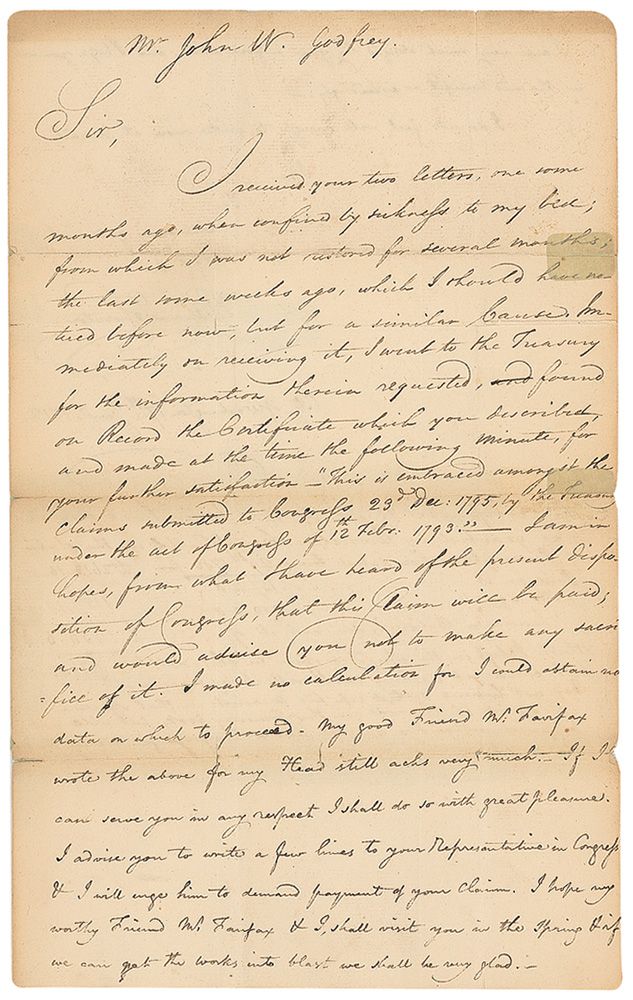 Mr. John W. Godfrey.
Sir,
I received your two letters, one some
months ago, when confined by sickness to my bed;
from which I was not restored for several months;
the last some weeks ago, which I should have no-
ticed before now, but for a similar Cause. Im-
mediately on receiving it, I went to the Treasury
for the information therein requested, and found
on Record the Certificate which you described,
and made at the time the following minute, for
your further satisfaction - "This is embraced amongst the
Claims submitted to Congress 23d Dec: 1795, by the Treasury
under the act of Congress of 12th Febr: 1793." — I am in
hopes, from what I have heard of the present dispo-
sition of Congress, that this Claim will be paid;
and would advise you not to make any sacri
=fice of it. I made no calculation for I could obtain no
data on which to proceed - My good Friend Mr. Fairfax
wrote the above for my Head still achs very much. - If I
can serve you in any respect I shall do so with great pleasure.
I advise you to write a few lines to your Representative in Congress
& I will urge him to demand payment of your Claim. I hope my
worthy Friend Mr. Fairfax & I, shall visit you in the Spring & if
we can get the works into blast we shall be very glad. -